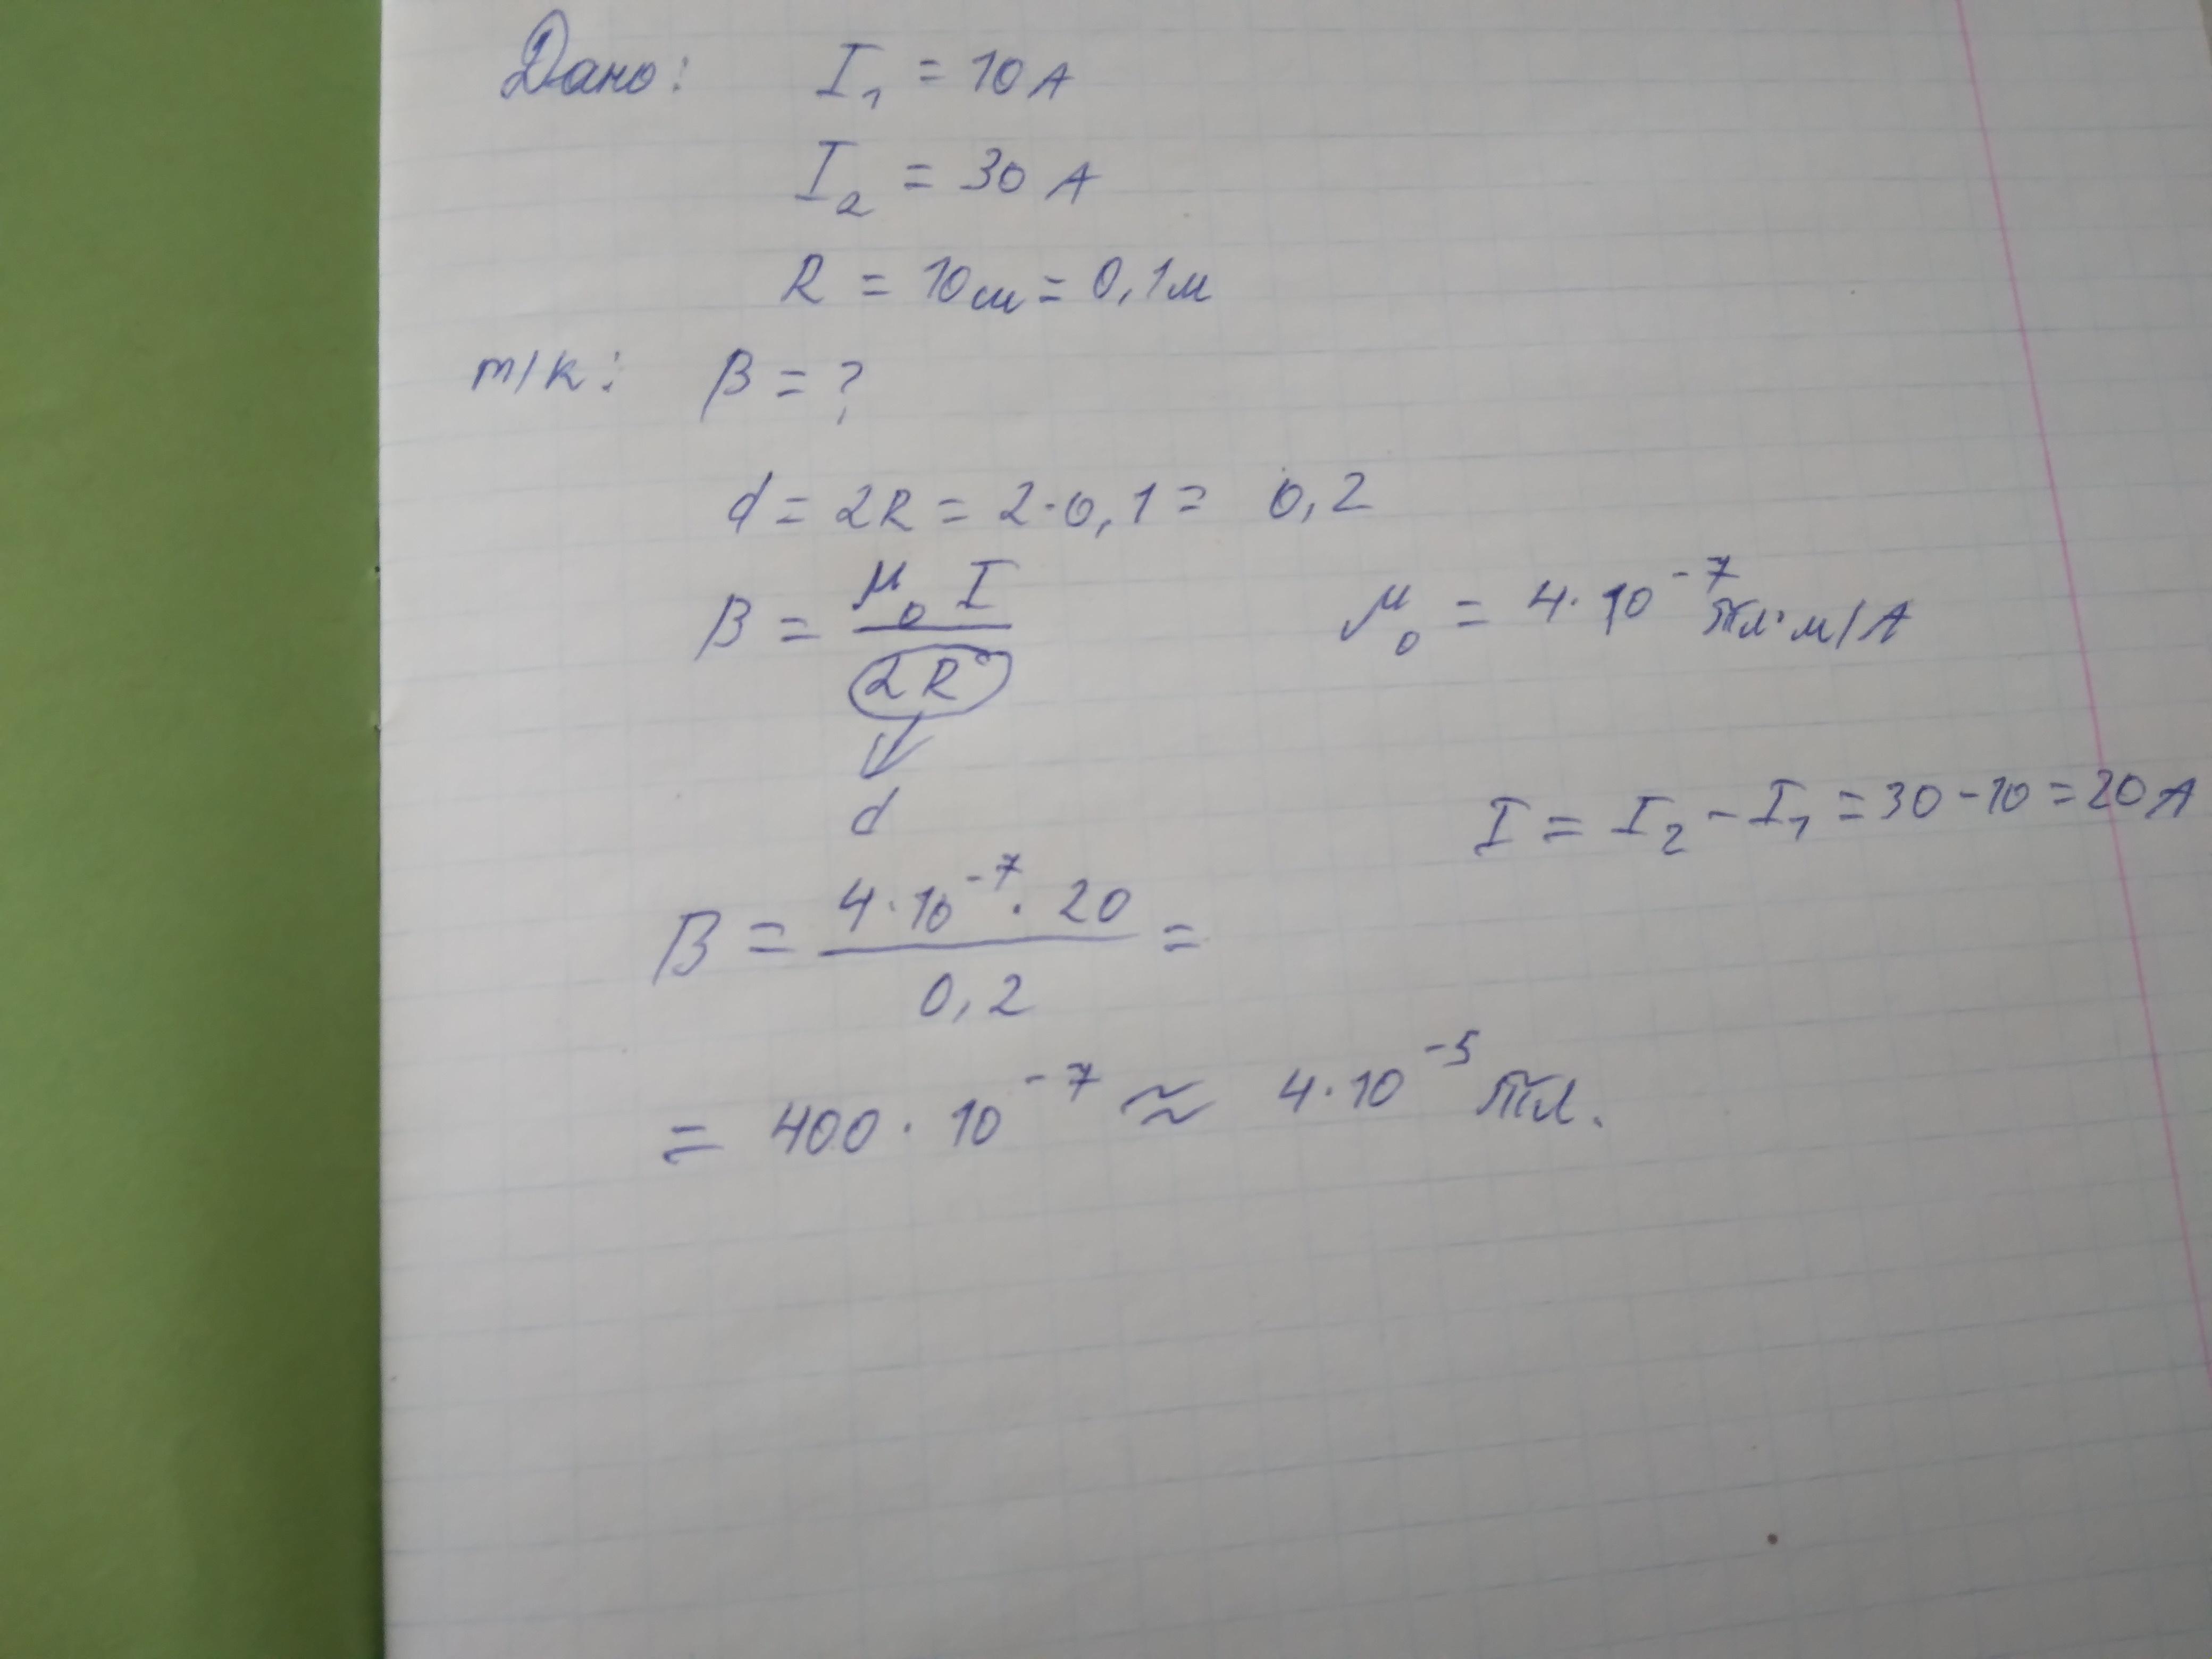 Дано: I₁ = 10 А
I₂ = 30 А
R = 10 см = 0,1 м
т/к: B = ?
d = 2R = 2·0,1 = 0,2
B = μ₀ I / 2R μ₀ = 4·10⁻⁷ Тл·м/А
d
I = I₂ - I₁ = 30 - 10 = 20 А
B = 4·10⁻⁷·20 / 0,2 =
= 400·10⁻⁷ ≈ 4·10⁻⁵ Тл.